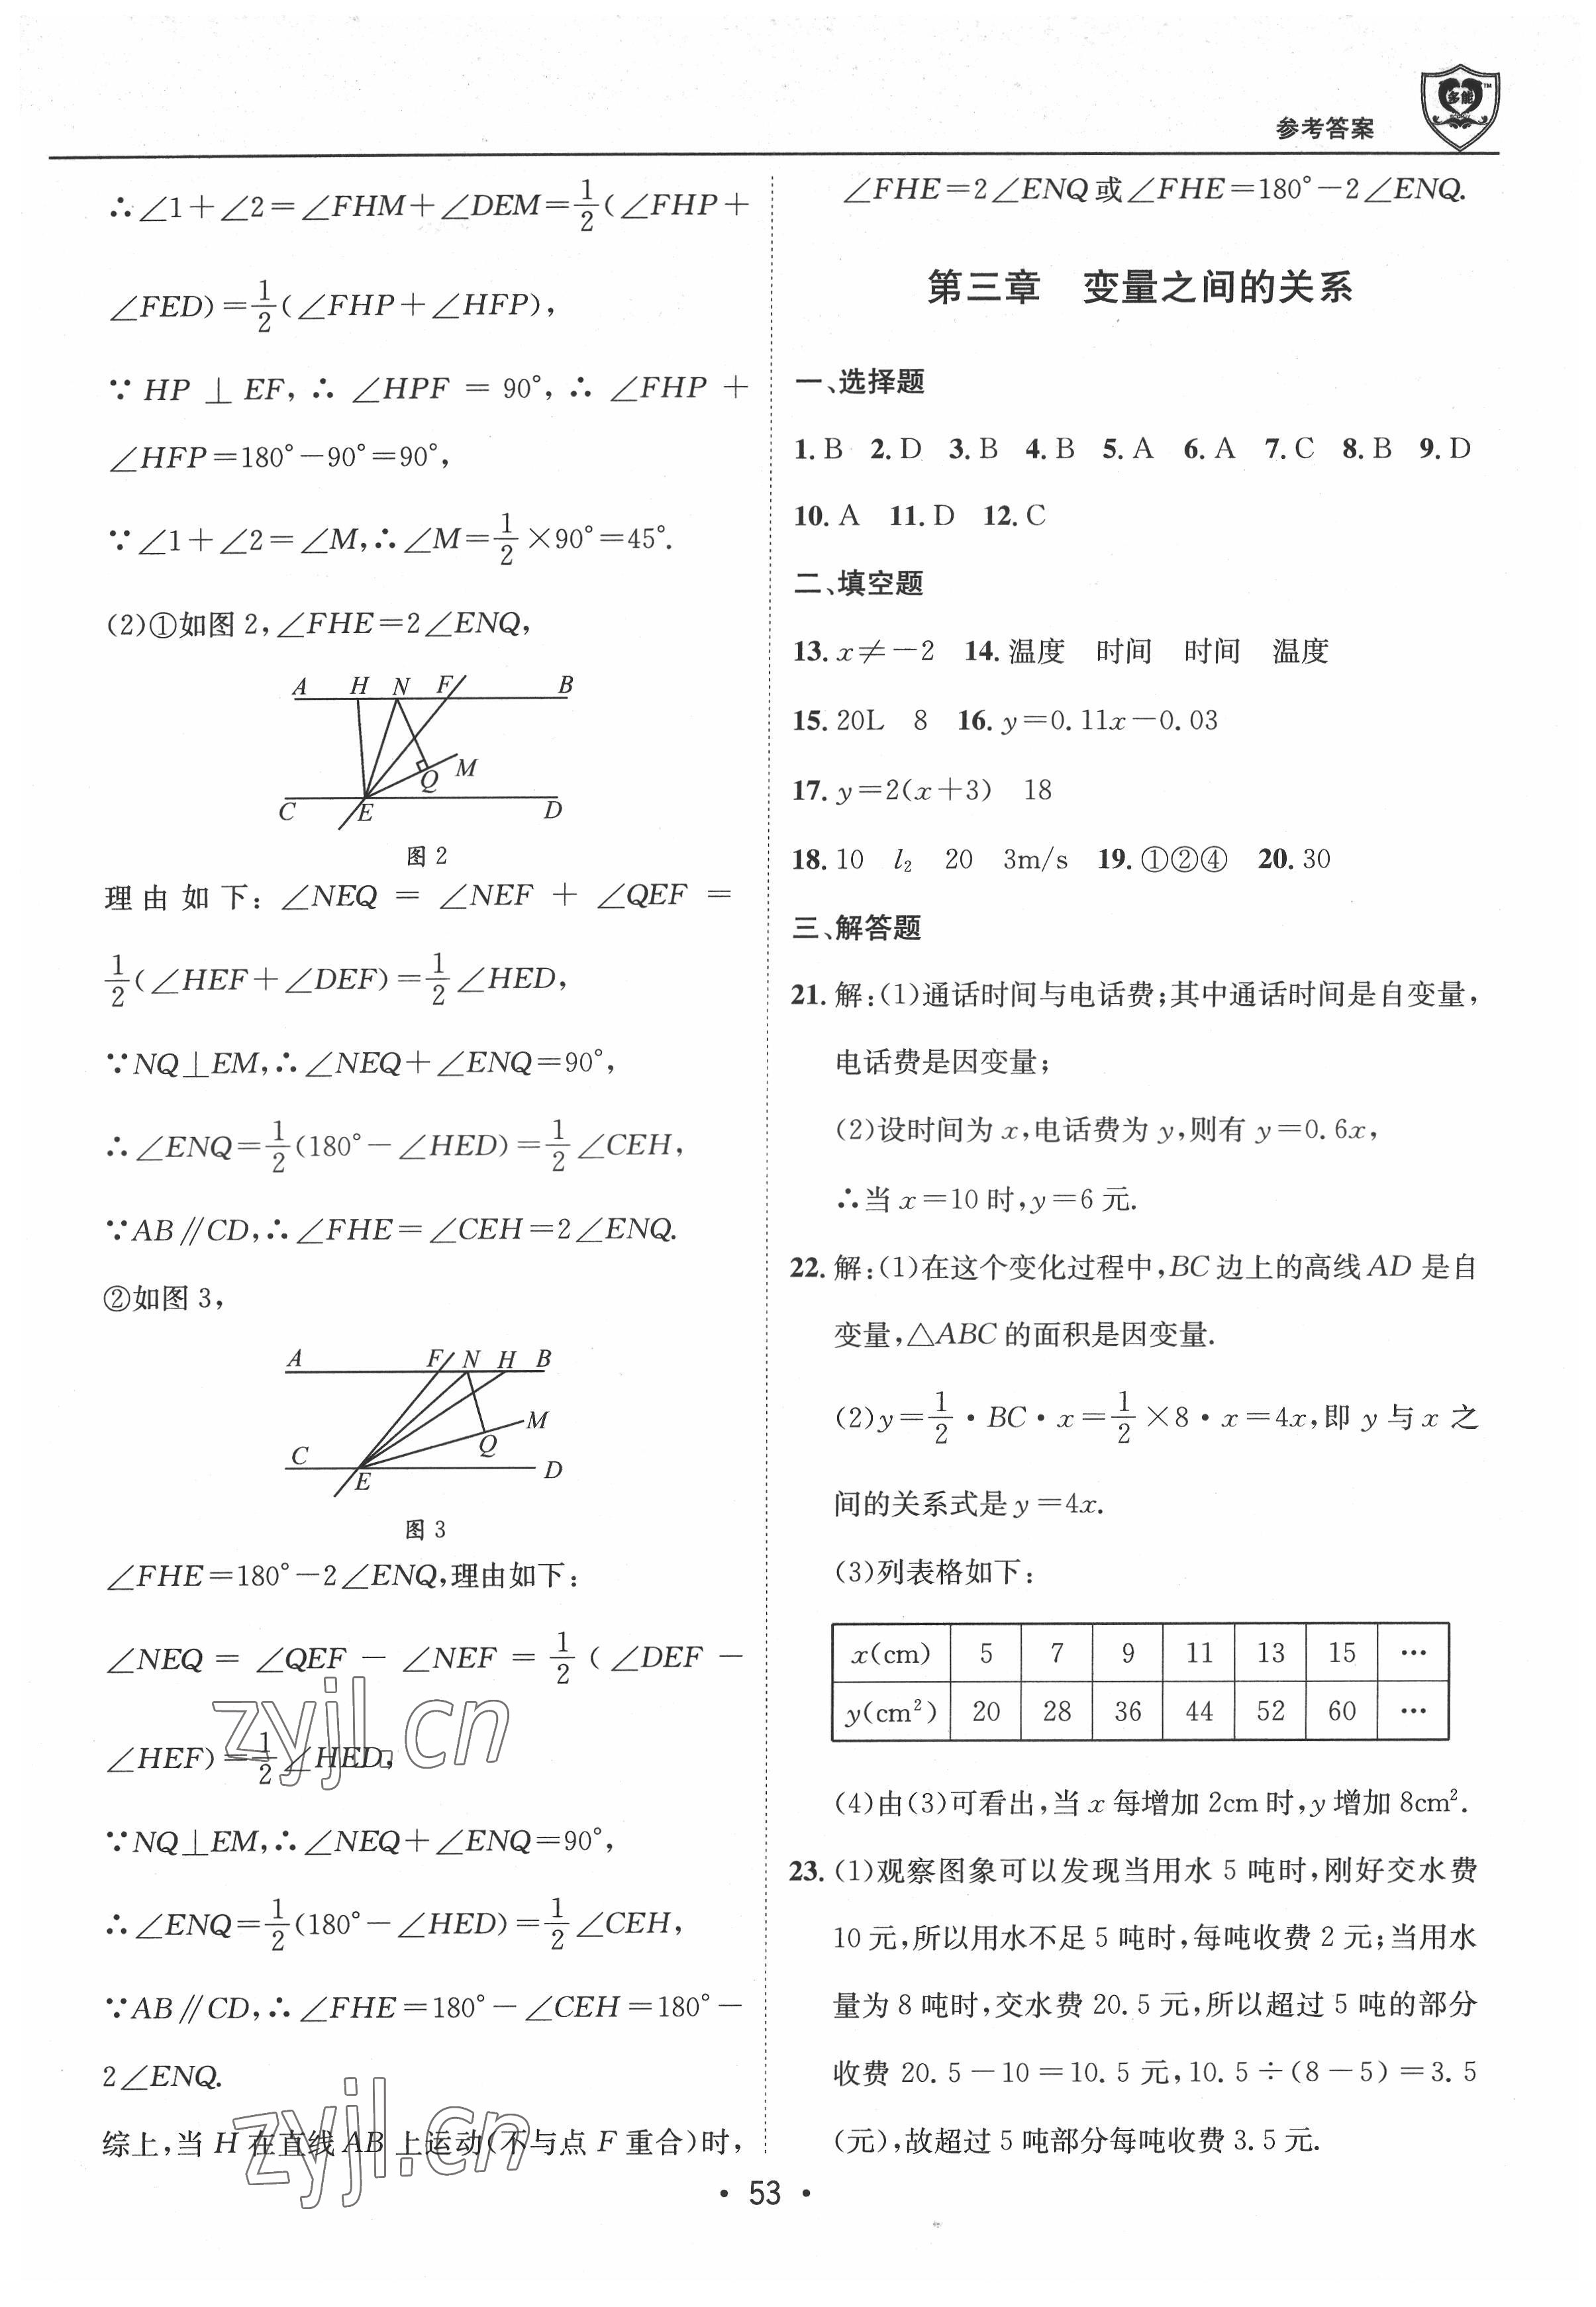 参考答案
多能
TM
∴∠1+∠2=∠FHM+∠DEM=1/2(∠FHP+
∠FED)=1/2(∠FHP+∠HFP),
∵HP⊥EF,∴∠HPF=90°,∴∠FHP+
∠HFP=180°-90°=90°,
∵∠1+∠2=∠M,∴∠M=1/2×90°=45°.
(2)①如图2,∠FHE=2∠ENQ,
A H N F B
M
Q
C E D
图2
理由如下:∠NEQ=∠NEF+∠QEF=
1/2(∠HEF+∠DEF)=1/2∠HED,
∵NQ⊥EM,∴∠NEQ+∠ENQ=90°,
∴∠ENQ=1/2(180°-∠HED)=1/2∠CEH,
∵AB∥CD,∴∠FHE=∠CEH=2∠ENQ.
②如图3,
A F N H B
M
Q
C E D
图3
∠FHE=180°-2∠ENQ,理由如下:
∠NEQ=∠QEF-∠NEF=1/2(∠DEF-
∠HEF)=1/2∠HED,
∵NQ⊥EM,∴∠NEQ+∠ENQ=90°,
∴∠ENQ=1/2(180°-∠HED)=1/2∠CEH,
∵AB∥CD,∴∠FHE=180°-∠CEH=180°-
2∠ENQ.
综上,当H在直线AB上运动(不与点F重合)时,
zyjl.cn
zyjl.cn
∠FHE=2∠ENQ或∠FHE=180°-2∠ENQ.
第三章 变量之间的关系
一、选择题
1.B 2.D 3.B 4.B 5.A 6.A 7.C 8.B 9.D
10.A 11.D 12.C
二、填空题
13.x≠-2 14.温度 时间 时间 温度
15.20L 8 16.y=0.11x-0.03
17.y=2(x+3) 18
18.10 l₂ 20 3m/s 19.①②④ 20.30
三、解答题
21.解:(1)通话时间与电话费;其中通话时间是自变量,
电话费是因变量;
(2)设时间为x,电话费为y,则有y=0.6x,
∴当x=10时,y=6元.
22.解:(1)在这个变化过程中,BC边上的高线AD是自
变量,△ABC的面积是因变量.
(2)y=1/2·BC·x=1/2×8·x=4x,即y与x之
间的关系式是y=4x.
(3)列表格如下:
x(cm) 5 7 9 11 13 15 …
y(cm²) 20 28 36 44 52 60 …
(4)由(3)可看出,当x每增加2cm时,y增加8cm².
23.(1)观察图象可以发现当用水5吨时,刚好交水费
10元,所以用水不足5吨时,每吨收费2元;当用水
量为8吨时,交水费20.5元,所以超过5吨的部分
收费20.5-10=10.5元,10.5÷(8-5)=3.5
(元),故超过5吨部分每吨收费3.5元.
·53·